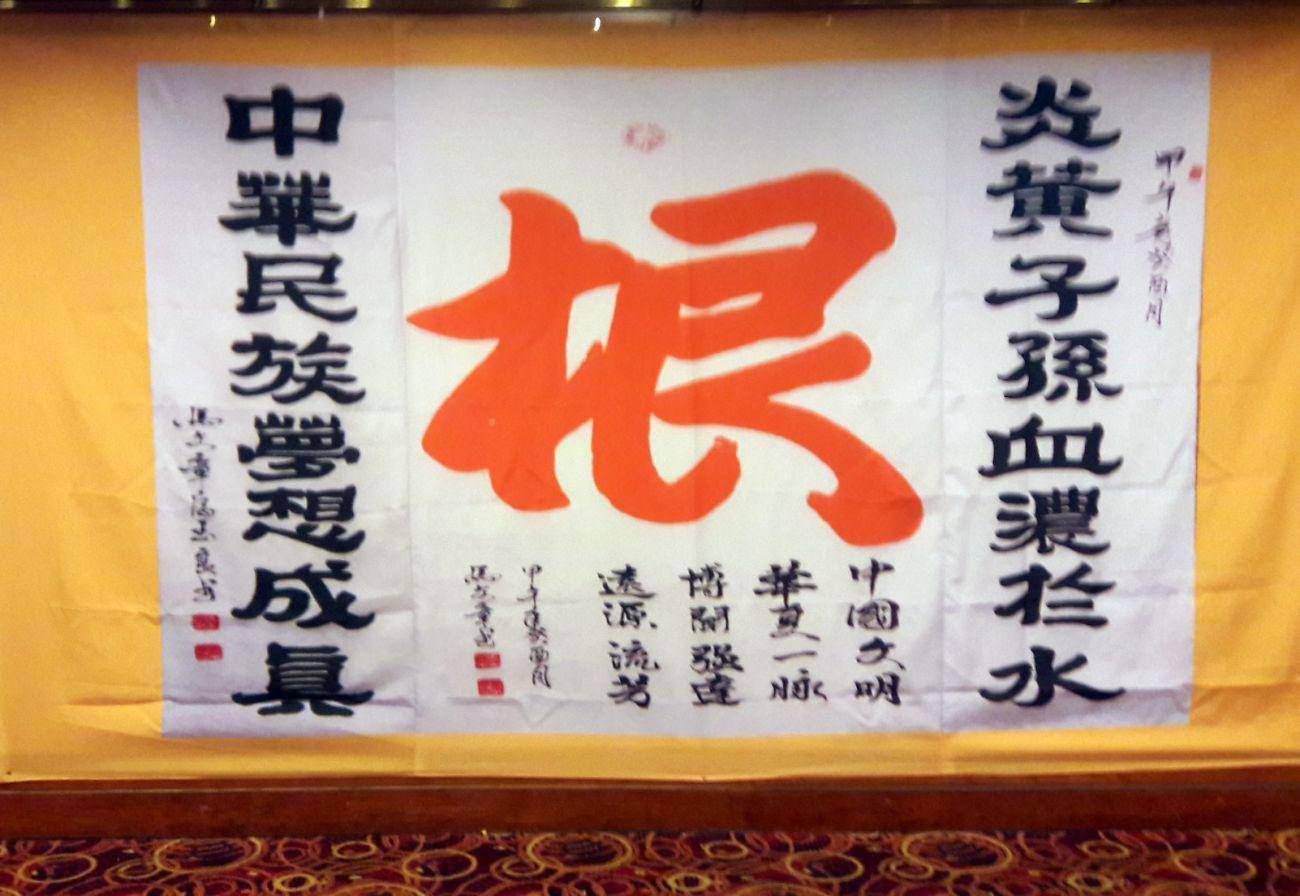 甲午癸酉月
炎黃子孫血濃於水
根
中國文明
華夏一脉
博達
遠源流芳
甲午酉月
中華民族夢想成真